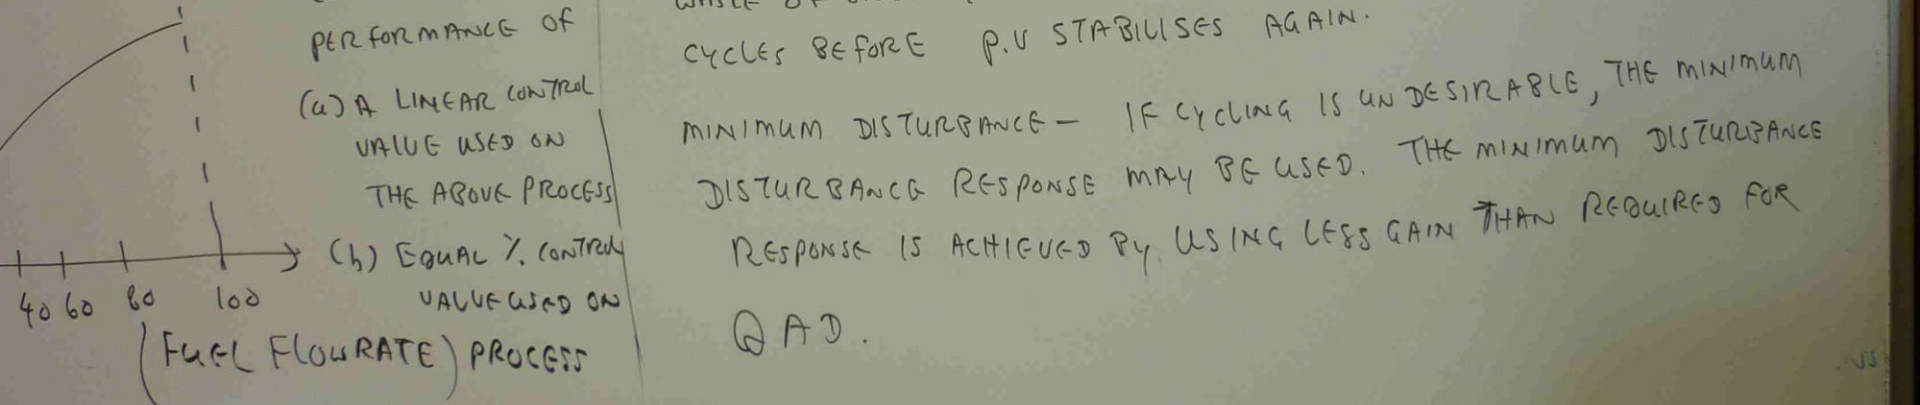 PERFORMANCE OF
(a) A LINEAR CONTROL
VALUE USED ON
THE ABOVE PROCESS
(b) EQUAL %. CONTROL
VALUE USED ON
PROCESS
40 60 80 100
(FUEL FLOWRATE)
CYCLES BEFORE P.V STABILISES AGAIN.
MINIMUM DISTURBANCE - IF CYCLING IS UNDESIRABLE, THE MINIMUM
DISTURBANCE RESPONSE MAY BE USED. THE MINIMUM DISTURBANCE
RESPONSE IS ACHIEVED BY USING LESS GAIN THAN REQUIRED FOR
QAD.